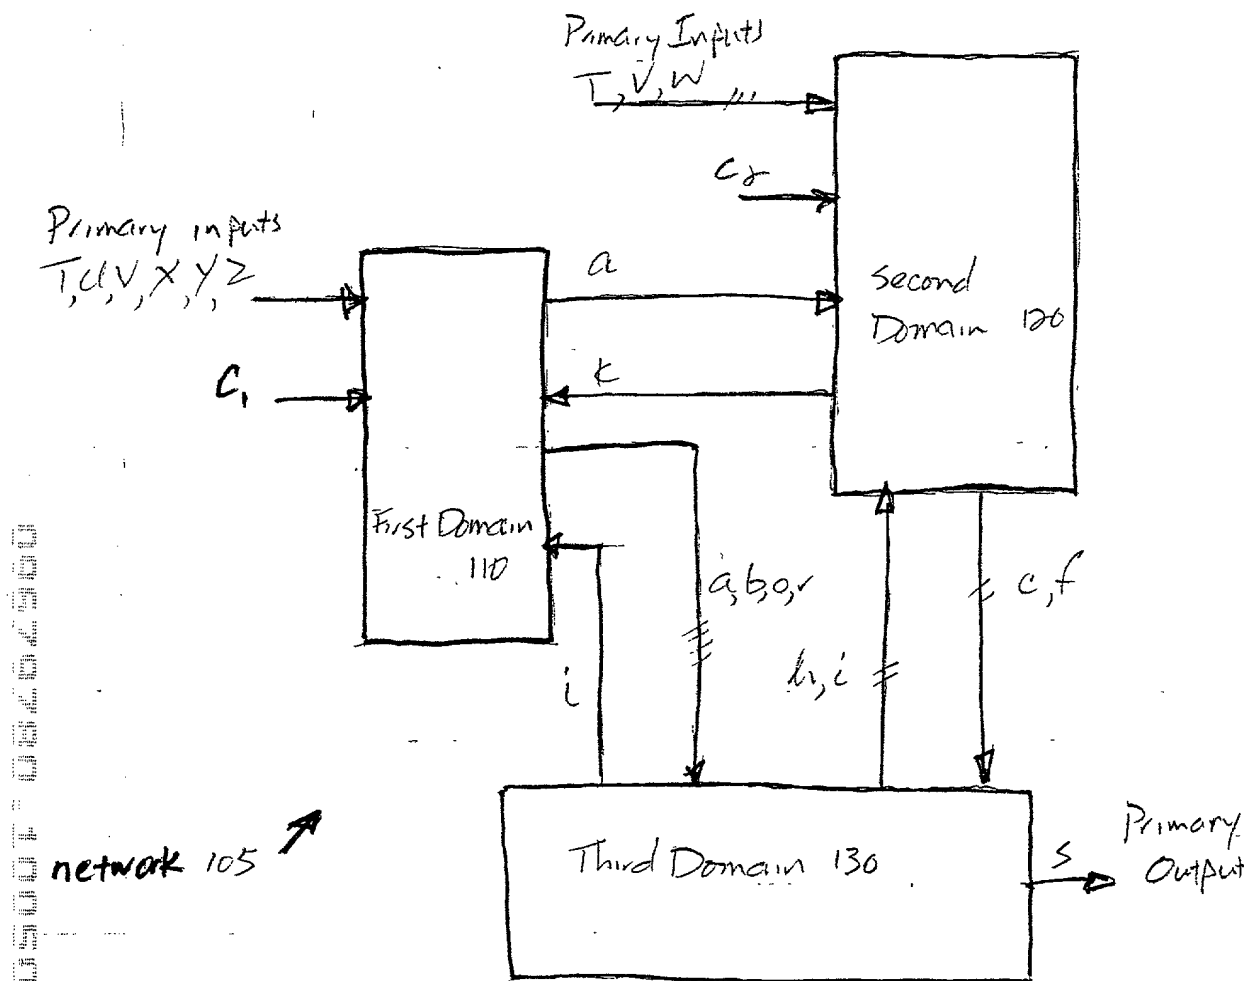 Primary Inputs
T, V, W
C2
Primary inputs
T, U, V, X, Y, Z
C1
a
k
Second
Domain 120
First Domain
110
a, b, o, r
h, i
c, f
i
Third Domain 130
s
Primary
Output
network 105